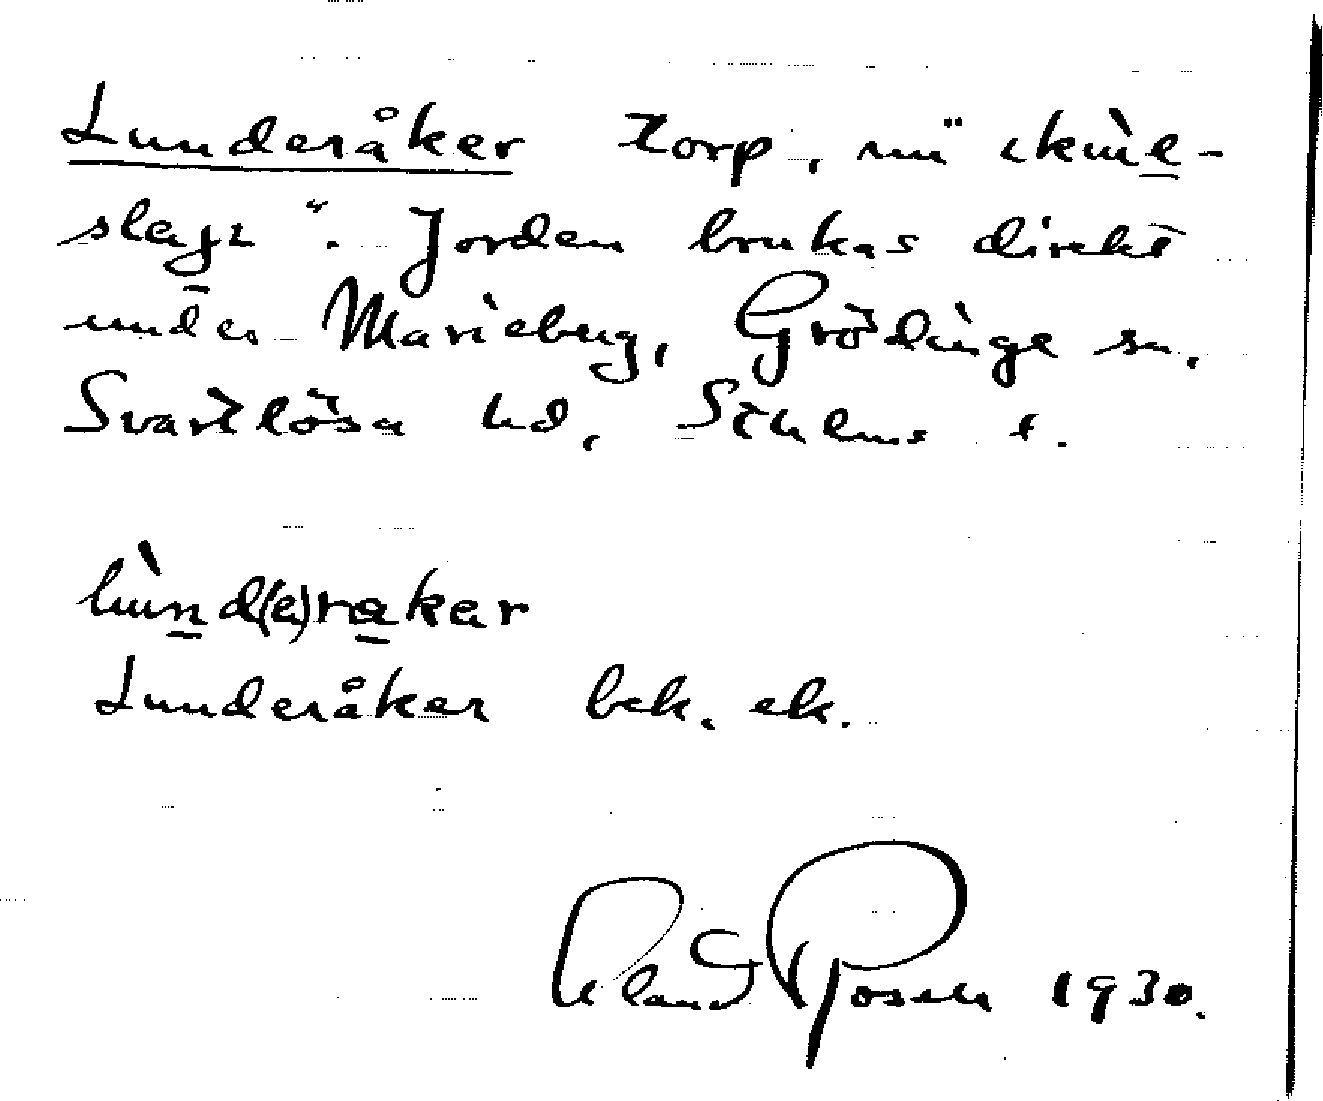 Lunderåker torp, nu "
slag̱t". Jorden brukas direkt
under Marieberg, Grödinge sn,
Svartlösa hd, Sthlms l.
lùn̲d(e)ra̲kər
Lunderåker bek. ek.
Rosen 1930.